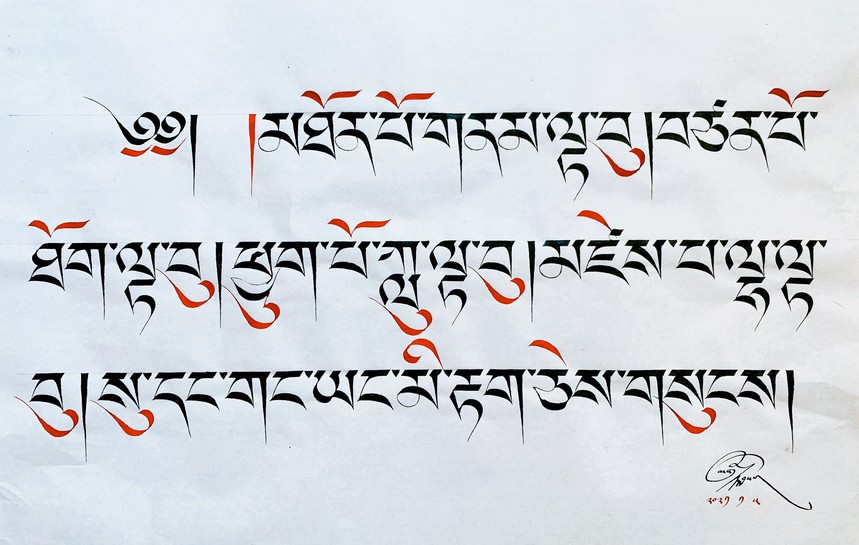 ༄༅། །མཐོན་པོ་གནམ་ལྟ་བུ། བཙན་པོ་
ཐོག་ལྟ་བུ། ཕྱུག་པོ་ཀླུ་ལྟ་བུ། མཛེས་པ་ལྷ་ལྟ་
བུ། སུ་དང་གང་ཡང་མི་རྟག་ཅེས་གསུངས།
༢༠༢༡ ༡